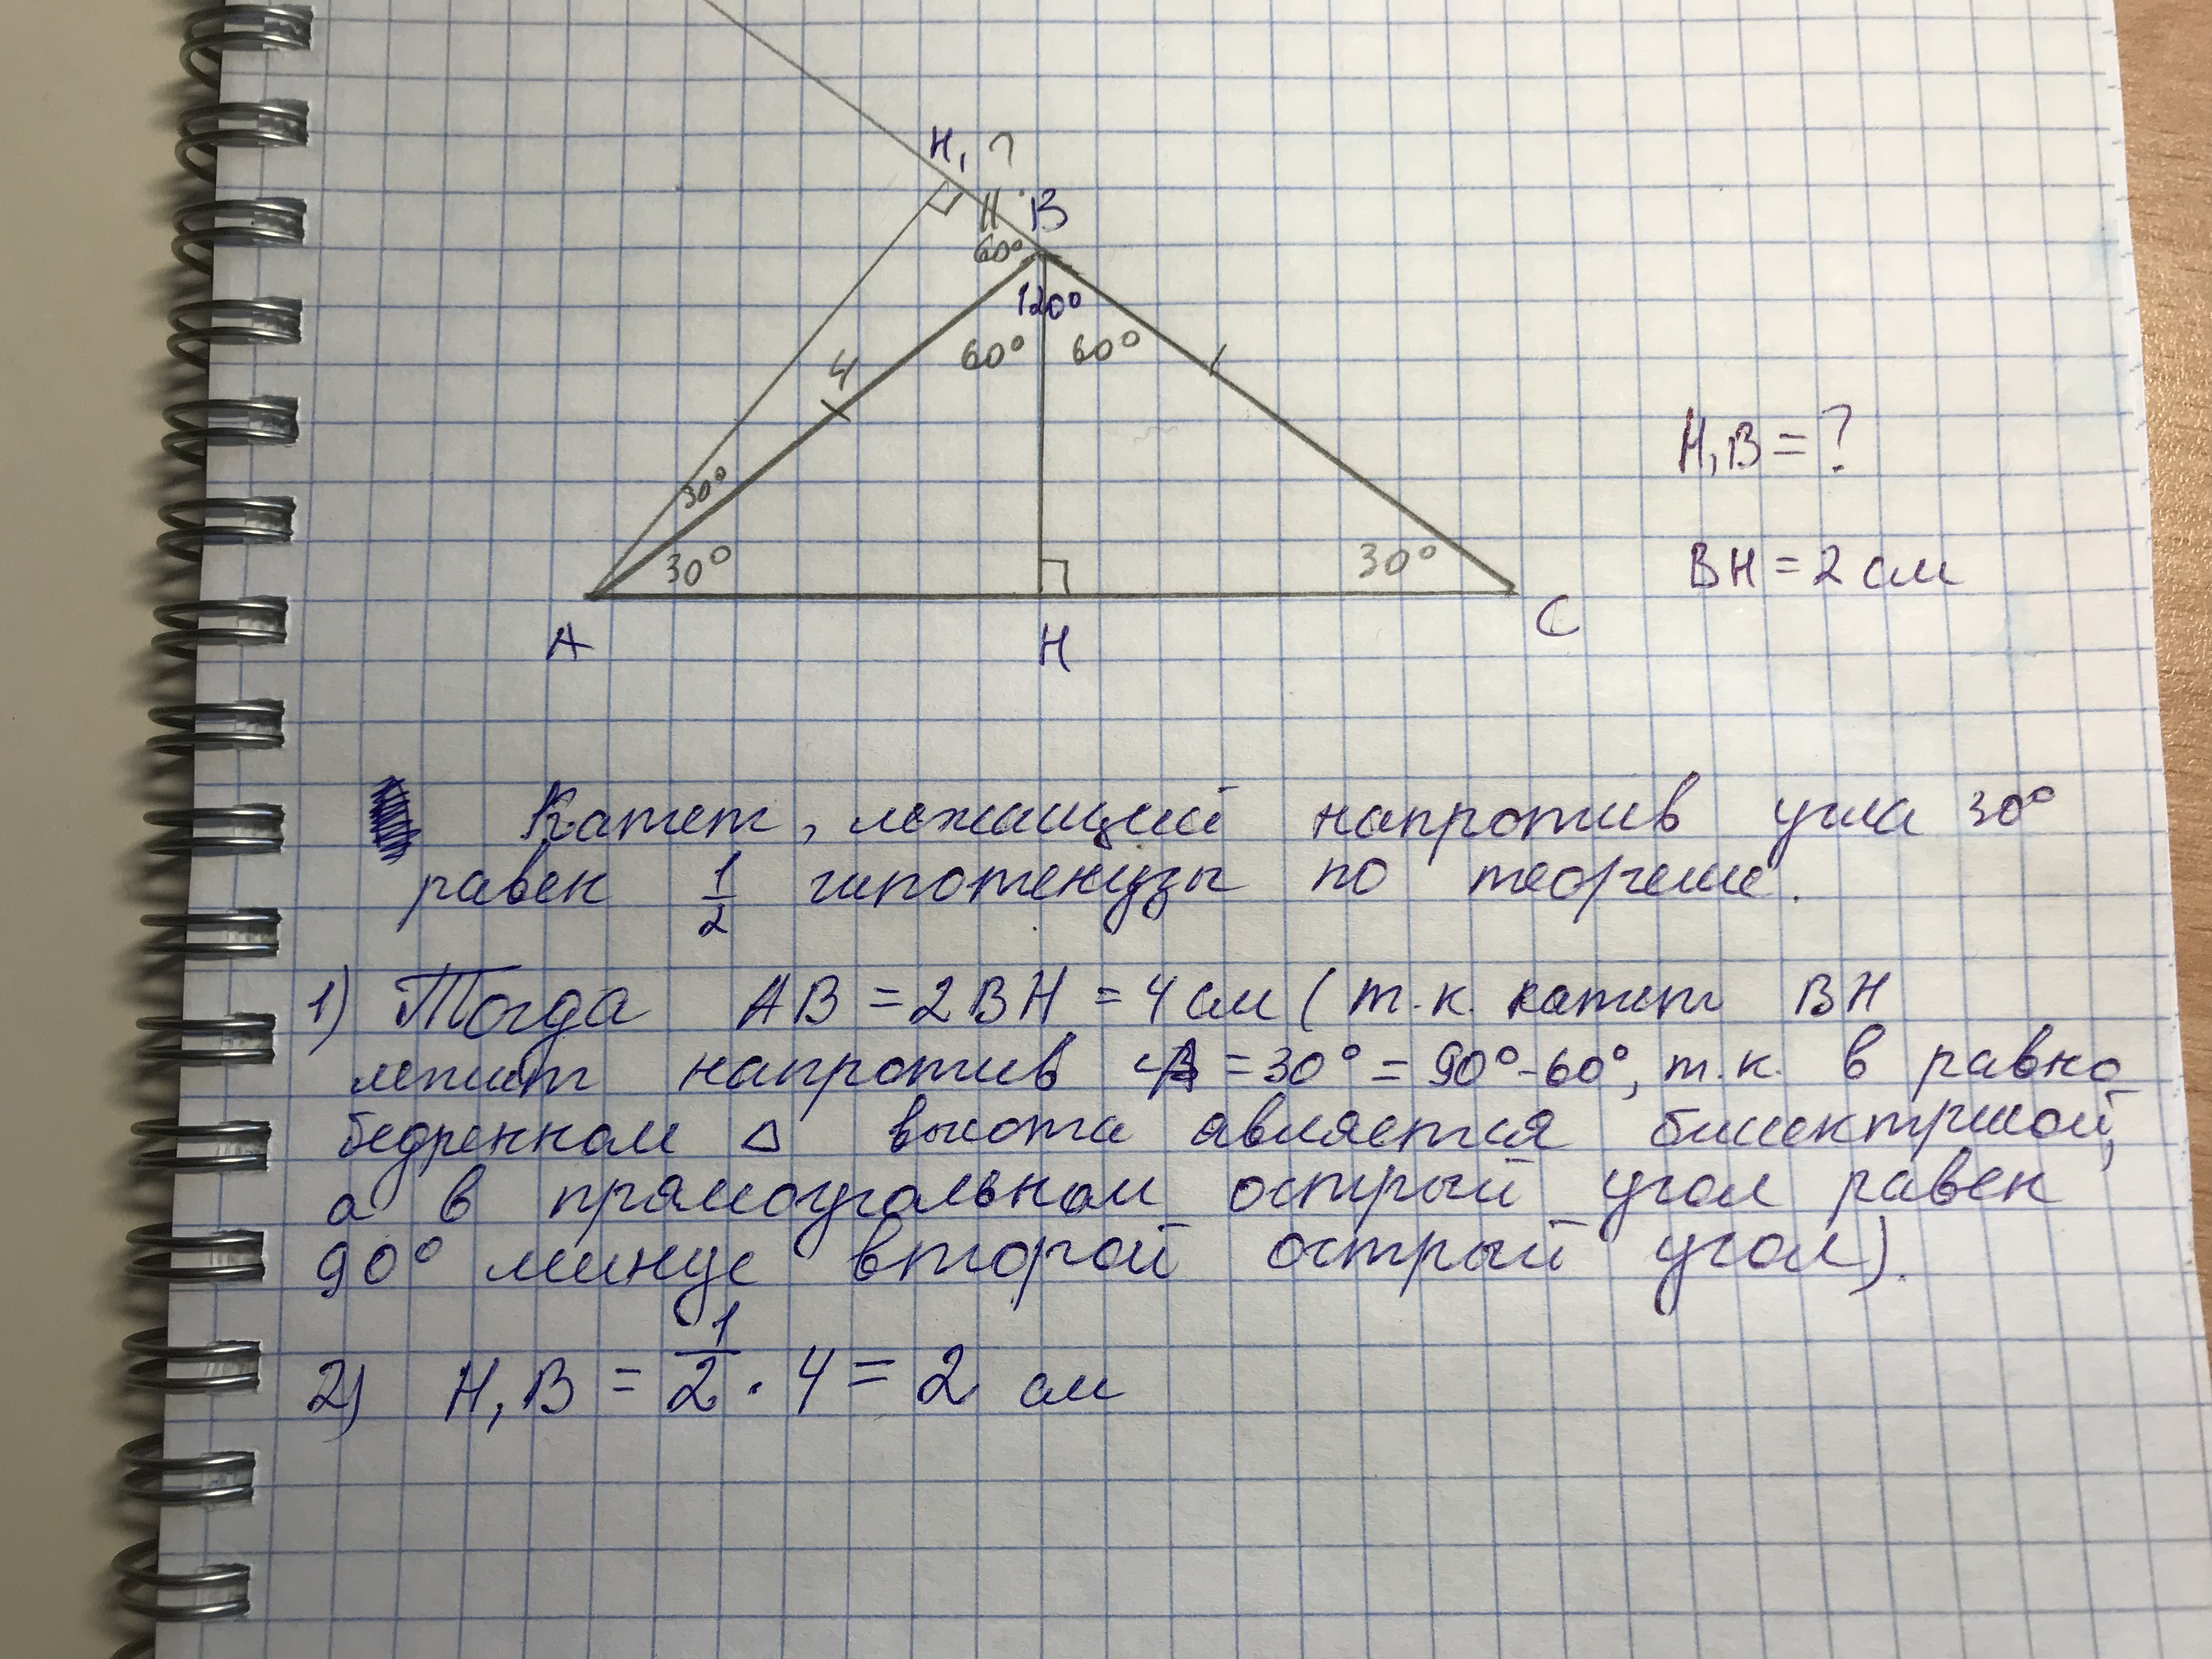 H₁ ?
H
B
60°
120°
60° 60°
4
30°
30°
30°
A
H
C
H₁B = ?
BH = 2 см
Катет, лежащий напротив угла 30°
равен 1/2 гипотенузы по теореме.
1) Тогда AB = 2BH = 4 см (т.к. катет BH
лежит напротив ∠A = 30° = 90° - 60°, т.к. в равно
бедренном △ высота является биссектрисой,
а в прямоугольном острый угол равен
90° минус второй острый угол).
2) H₁B = 1/2 · 4 = 2 см